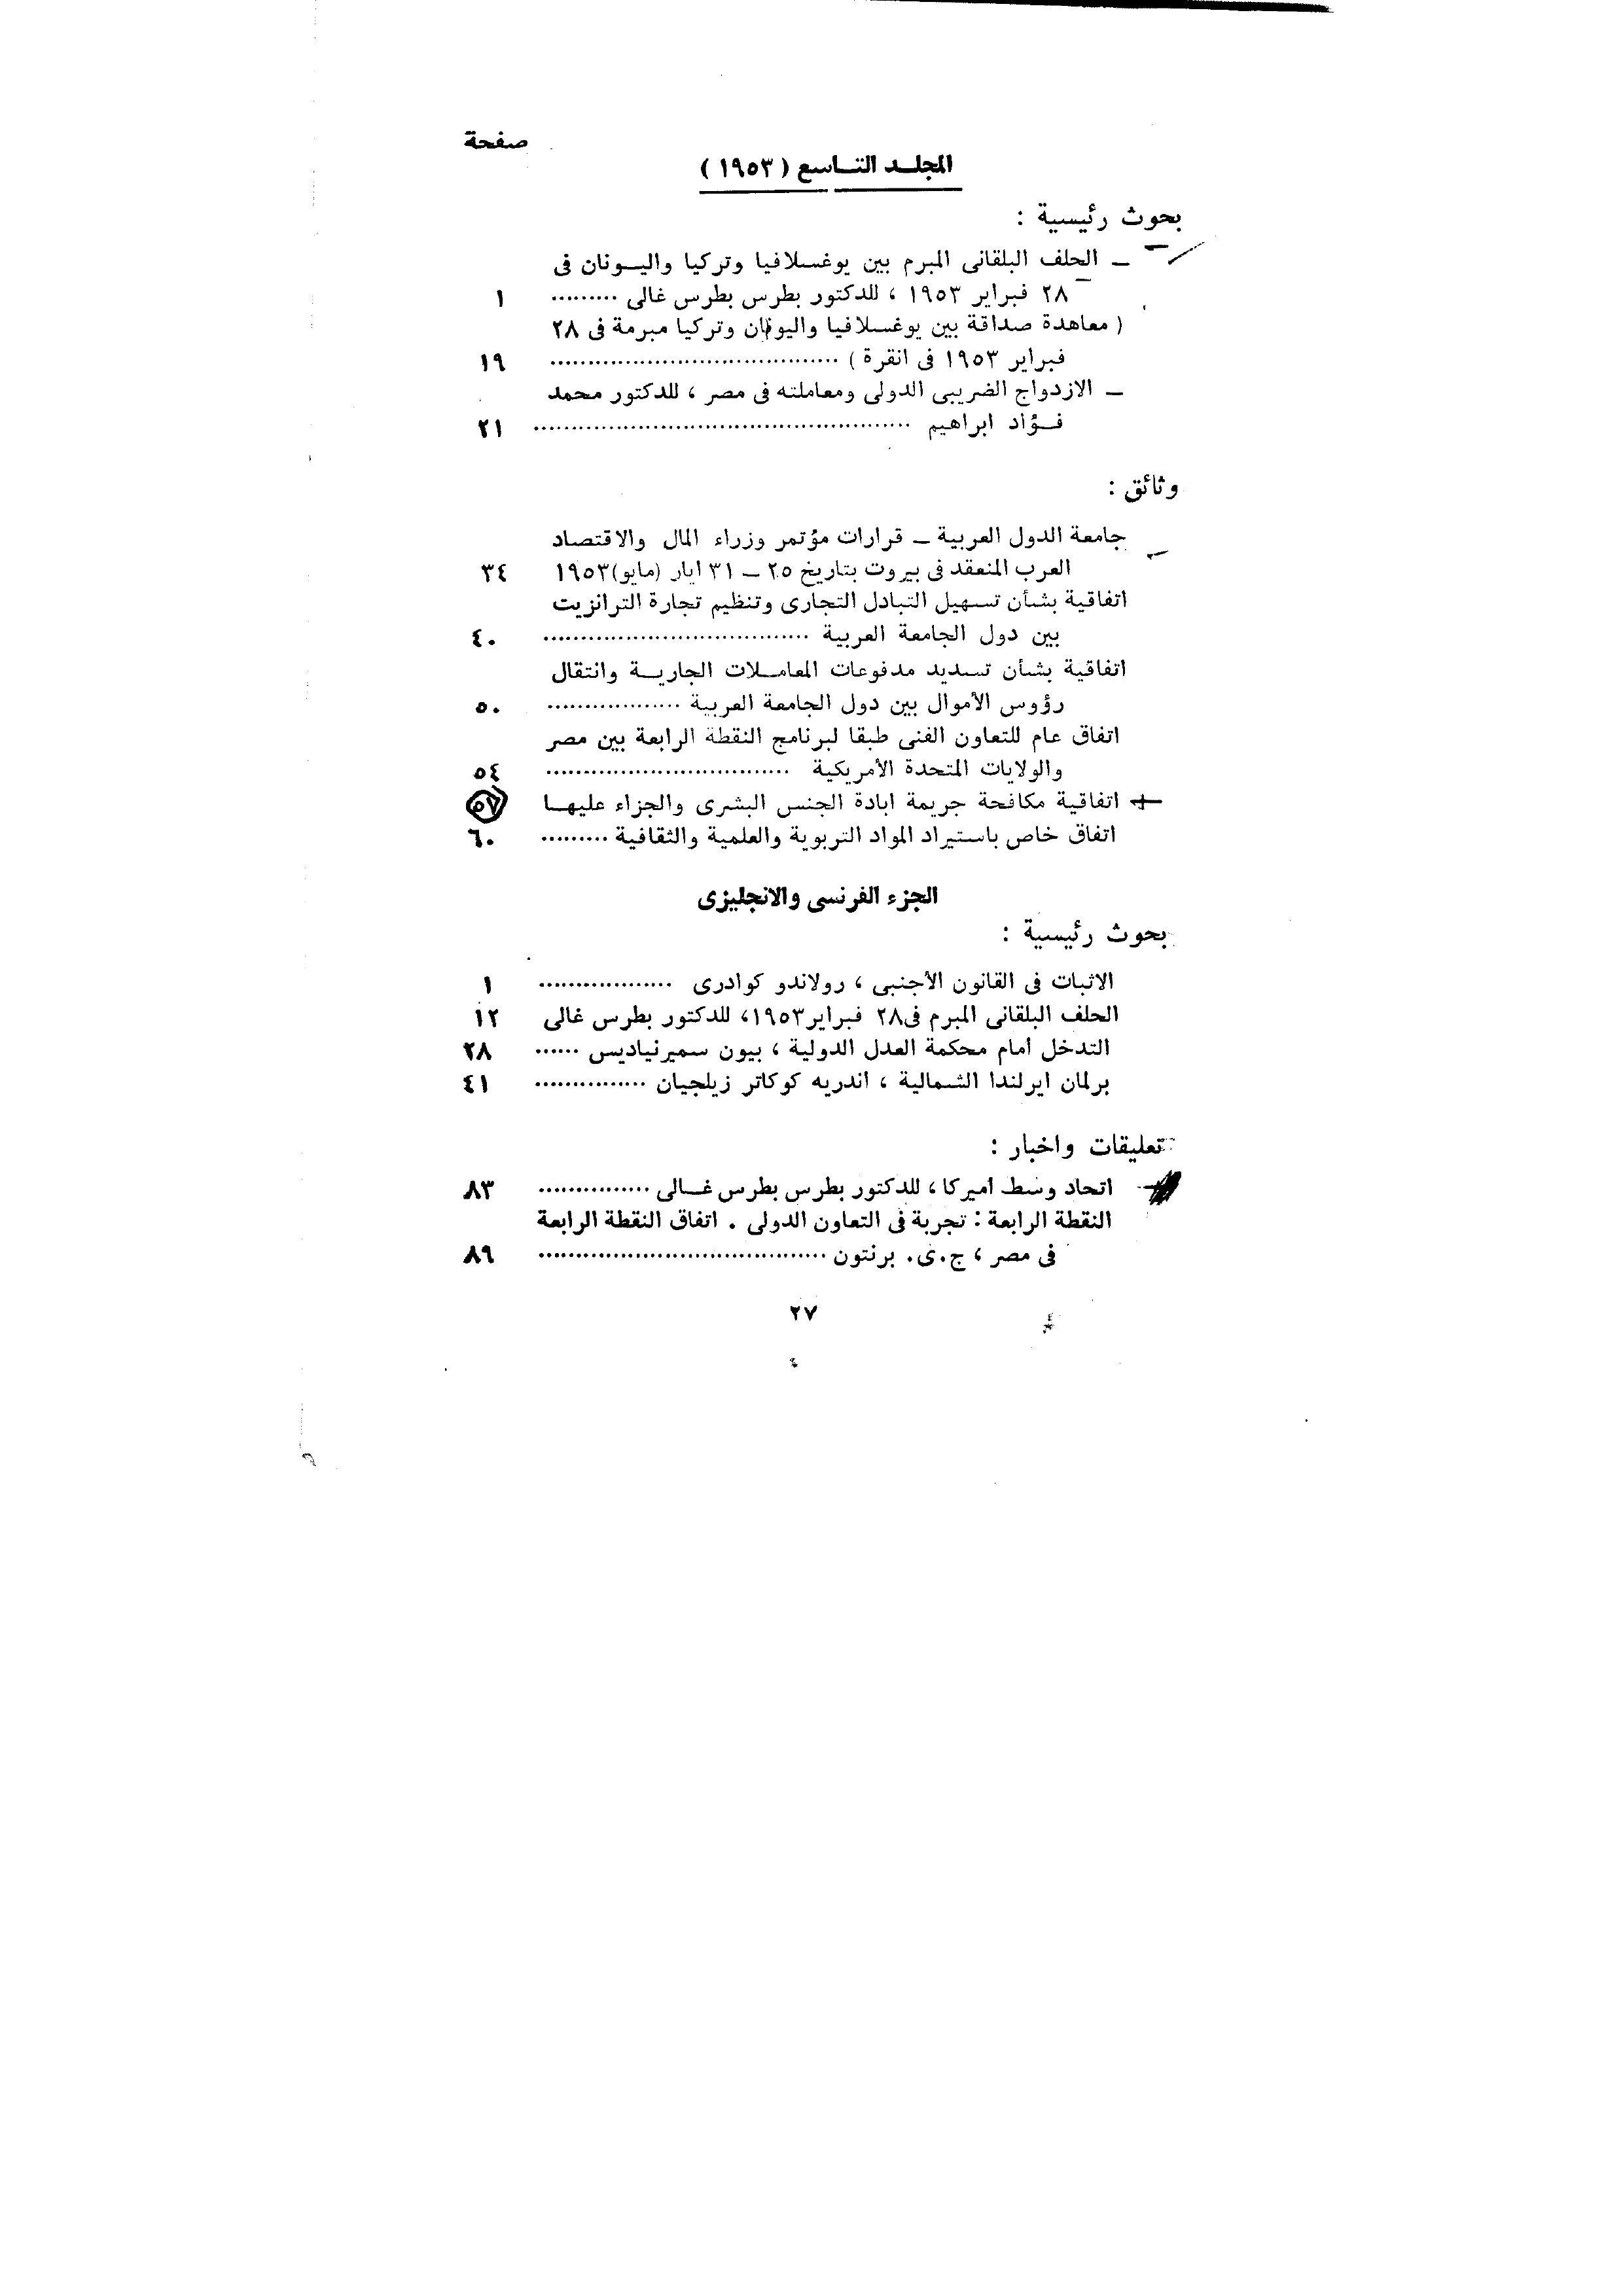 صفحة
المجلد التاسع ( ١٩٥٣ )
بحوث رئيسية :
ــ الحلف البلقانى المبرم بين يوغسلافيا وتركيا واليونان فى
٢٨ فبراير ١٩٥٣ ، للدكتور بطرس بطرس غالى ......... ١
( معاهدة صداقة بين يوغسلافيا واليونان وتركيا مبرمة فى ٢٨
فبراير ١٩٥٣ فى انقرة ) ...................................... ١٩
ــ الازدواج الضريبى الدولى ومعاملته فى مصر ، للدكتور محمد
فؤاد ابراهيم .................................................. ٢١
وثائق :
جامعة الدول العربية ــ قرارات مؤتمر وزراء المال والاقتصاد
العرب المنعقد فى بيروت بتاريخ ٢٥ ــ ٣١ ايار (مايو)١٩٥٣ ٣٤
اتفاقية بشأن تسهيل التبادل التجارى وتنظيم تجارة الترانزيت
بين دول الجامعة العربية ................................... ٤٠
اتفاقية بشأن تسديد مدفوعات المعاملات الجارية وانتقال
رؤوس الأموال بين دول الجامعة العربية .................. ٥٠
اتفاق عام للتعاون الفنى طبقا لبرنامج النقطة الرابعة بين مصر
والولايات المتحدة الأمريكية ................................ ٥٤
اتفاقية مكافحة جريمة ابادة الجنس البشرى والجزاء عليها ٥٧
اتفاق خاص باستيراد المواد التربوية والعلمية والثقافية ......... ٦٠
الجزء الفرنسى والانجليزى
بحوث رئيسية :
الاثبات فى القانون الأجنبى ، رولاندو كوادرى .................. ١
الحلف البلقانى المبرم فى٢٨ فبراير١٩٥٣، للدكتور بطرس غالى ١٢
التدخل أمام محكمة العدل الدولية ، بيون سميرنياديس ...... ٢٨
برلمان ايرلندا الشمالية ، أندريه كوكاتر زيلجيان ............... ٤١
تعليقات واخبار :
اتحاد وسط أميركا ، للدكتور بطرس بطرس غالى ............... ٨٣
النقطة الرابعة : تجربة فى التعاون الدولى . اتفاق النقطة الرابعة
فى مصر ، ج.ى. برنتون ...................................... ٨٩
٢٧